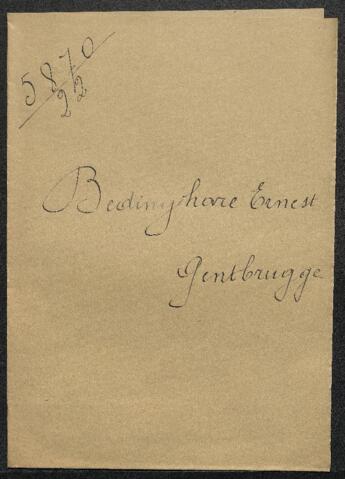 5870
22
Bedinghave Ernest
Gentbrugge